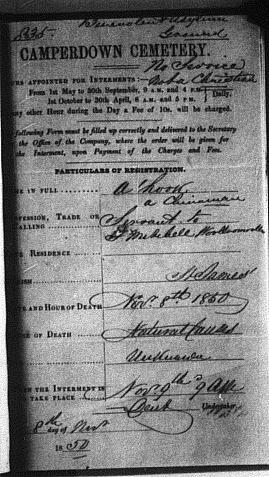 Benevolent Asylum
Ground
CAMPERDOWN CEMETERY.
No Service
URS APPOINTED FOR INTERMENTS:—
From 1st May to 30th September, 9 A.M. and 4 P.M.
1st October to 30th April, 8 A.M. and 5 P.M. Daily.
Any other Hour during the Day a Fee of 10s. will be charged.
following Form must be filled up correctly and delivered to the Secretary
the Office of the Company, where the order will be given for
the Interment, upon Payment of the Charges and Fees.
PARTICULARS OF REGISTRATION.
E IN FULL
a Chinaman
FESSION, TRADE OR
ALLING
Servant to
Mitchell
TE RESIDENCE
ISH
St James'
TE AND HOUR OF DEATH
Nov. 8th 1850
SE OF DEATH
Natural Causes
Unknown
EN THE INTERMENT IS
TO TAKE PLACE
Nov. 9th 9 AM
Undertaker
8th
day of Nov
18 50